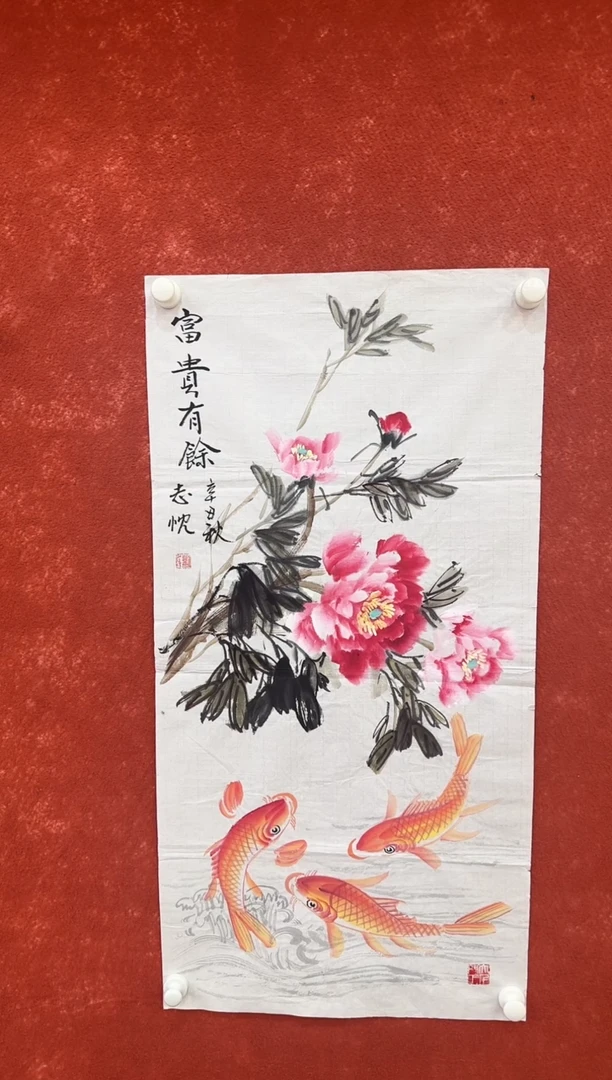 富貴有餘
辛丑秋
志忱